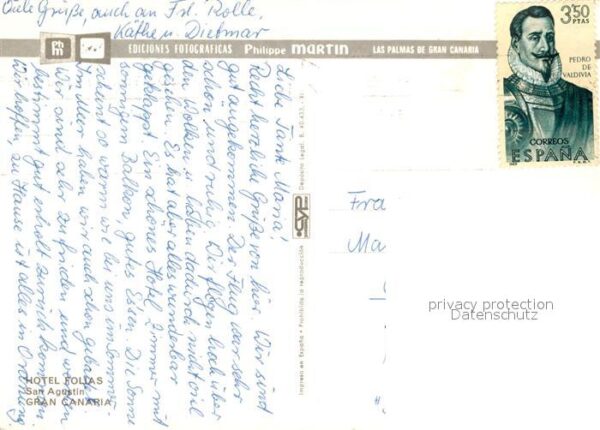 Viele Grüße, auch an Frl. Rolle,
Käthe u. Dietmar
EDICIONES FOTOGRAFICAS Philippe MARTIN LAS PALMAS DE GRAN CANARIA
Liebe Tante Maria!
Recht herzliche Grüße von hier. Wir sind
gut angekommen. Der Flug war sehr
schön und ruhig. Die flogen hoch über
den Wolken u. haben dadurch nicht viel
gesehen. Es hat aber alles wunderbar
geklappt. Ein schönes Hotel, Zimmer mit
Balkon, gutes Essen. Die Sonne
scheint so warm wie bei uns im Sommer.
Im Meer haben wir auch schon gebadet.
Wir sind sehr zufrieden und werden
bestimmt gut erholt zurück kommen.
Wir hoffen, zu Hause ist alles in Ordnung
HOTEL FOLIAS
San Agustin
GRAN CANARIA
Depósito Legal. B. 40.433 - XI
CYP
Impreso en España - Prohibida la reproducción
3,50
PTAS
PEDRO
DE
VALDIVIA
CORREOS
ESPAÑA
Fra
Ma
privacy protection
Datenschutz